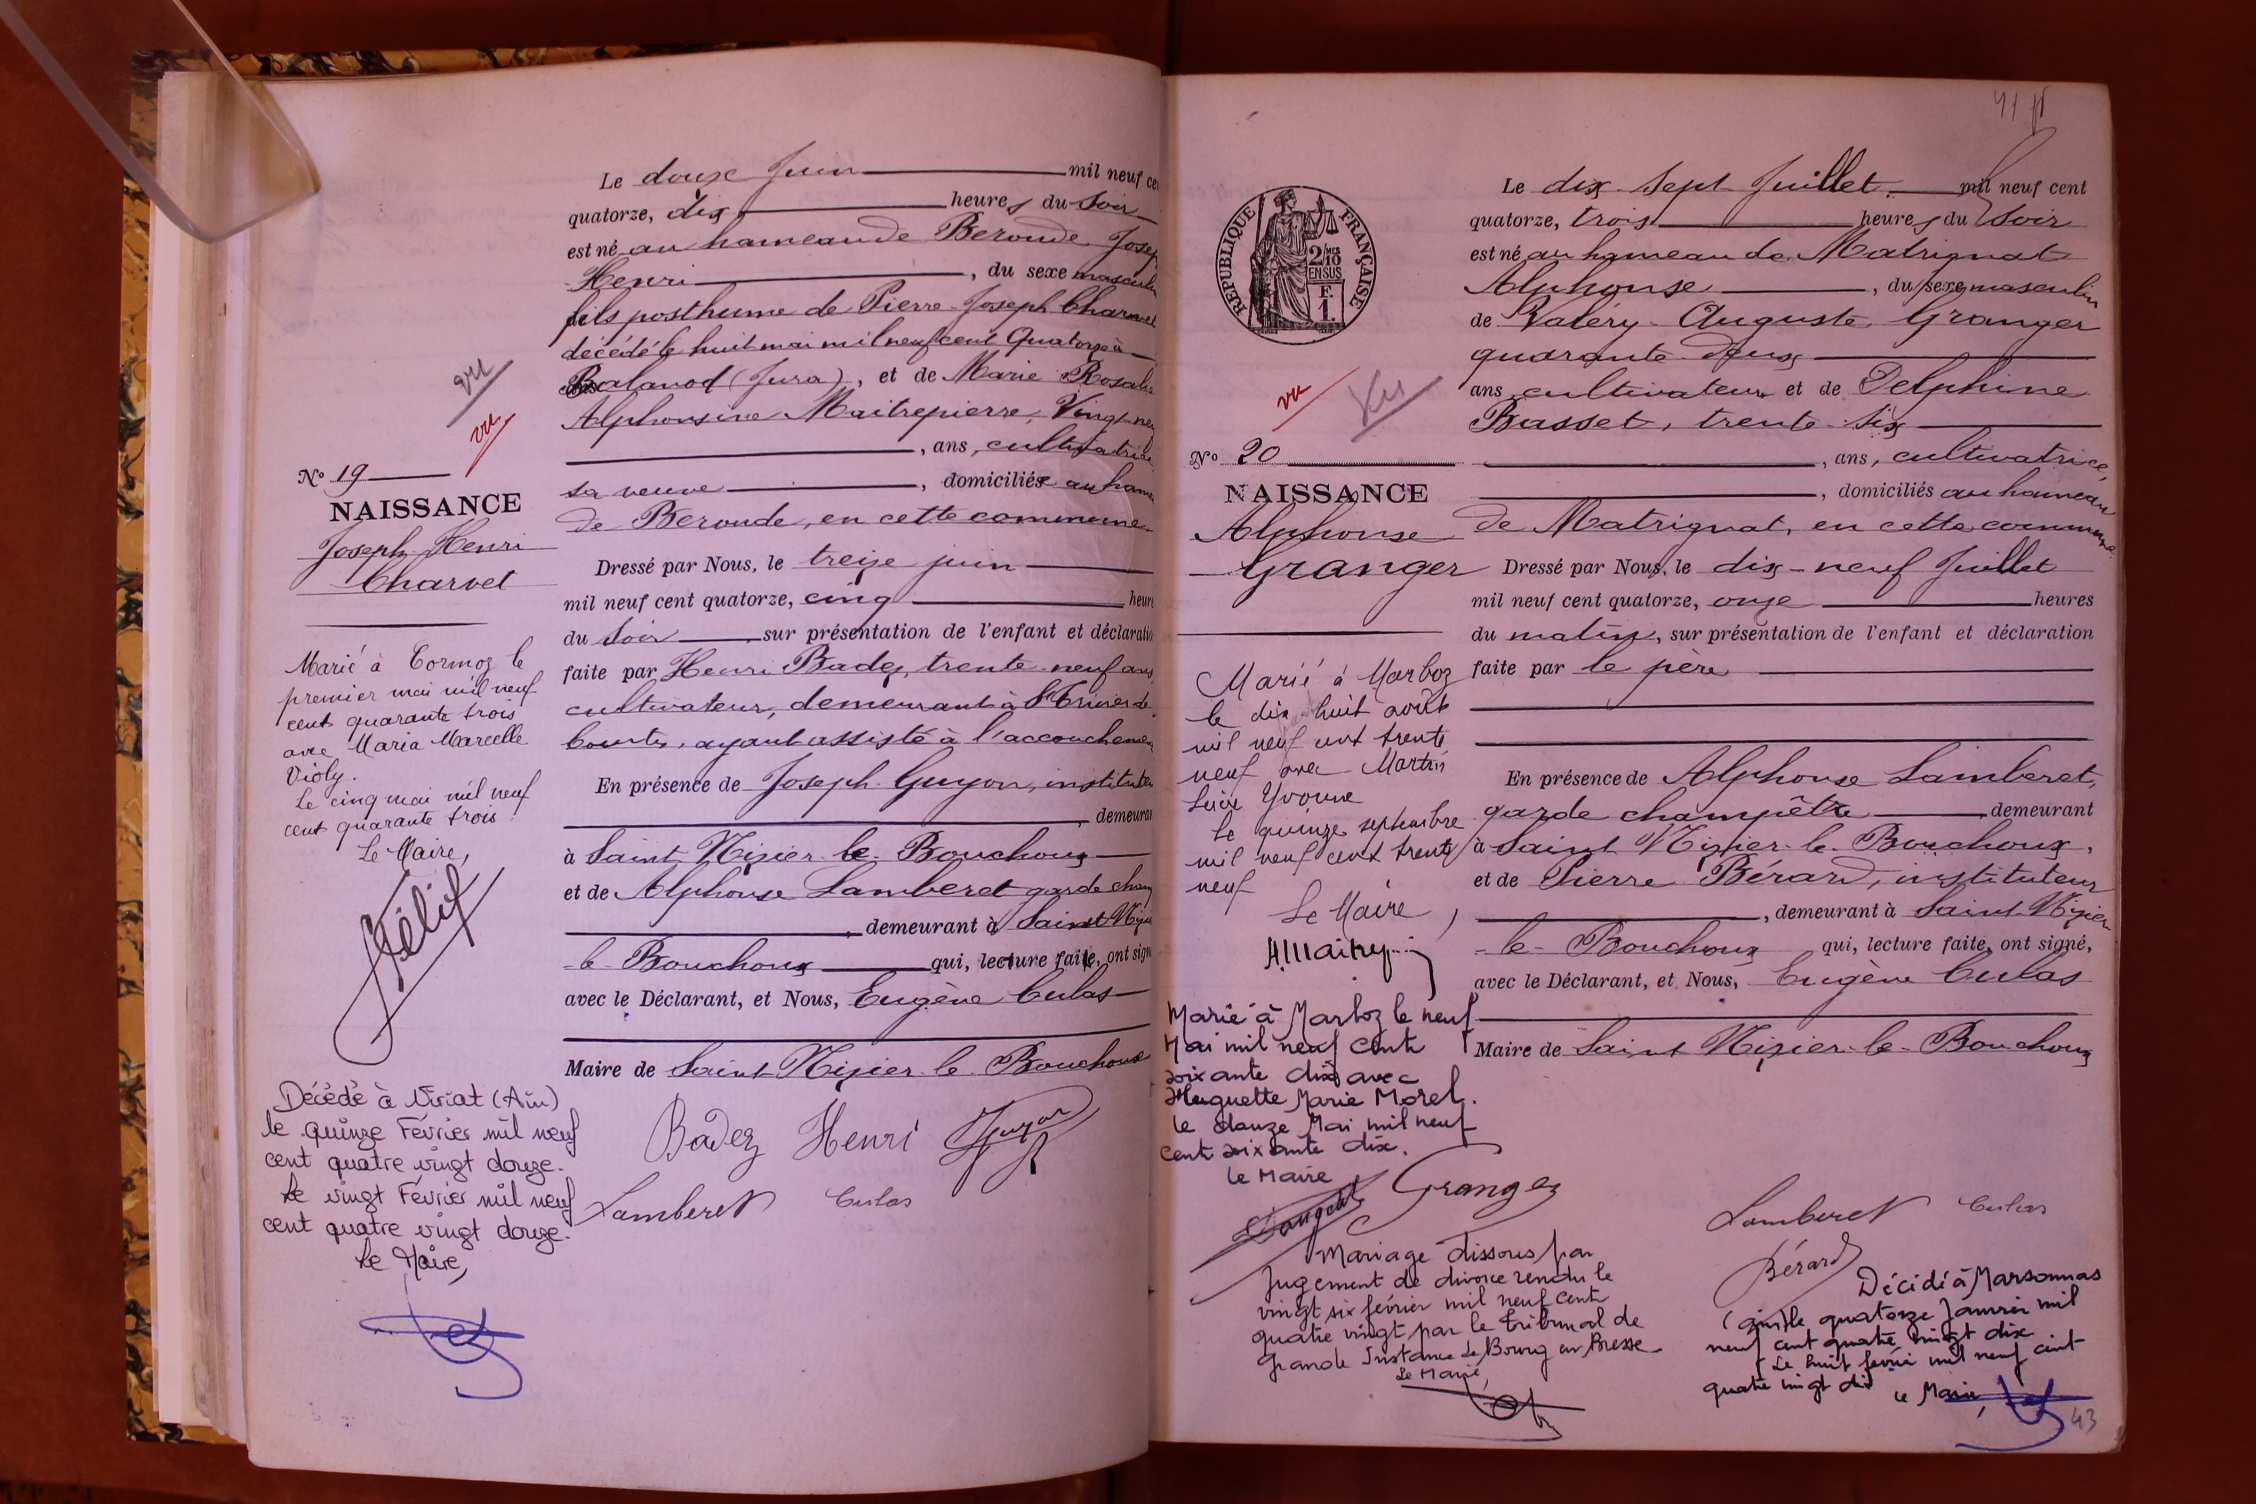 Le douze Juin mil neuf cen
quatorze, dix heures du Soir
est né au hameau de Beroude Josep
Henri, du sexe masculin
fils posthume de Pierre-Joseph Charvet
décédé le huit mai mil neuf cent Quatorze à
Balanod (Jura), et de Marie Rosalie
Alphonsine Maitrepierre, Vingt-neu
, ans, cultivatrice
sa veuve, domiciliée au hame
de Beroude, en cette commune
vu
vu
N° 19
NAISSANCE
Joseph Henri
Charvet
Dressé par Nous, le treize juin
mil neuf cent quatorze, cinq heure
du Soir sur présentation de l'enfant et déclaratio
faite par Henri Badez, trente-neuf ans
cultivateur, demeurant à St Trivier de
Courtes, ayant assisté à l'accouchemen
En présence de Joseph Guyon, instituteu
, demeuran
à Saint Nizier le Bouchoux
et de Alphonse Lamberet garde cham
, demeurant à Saint Nizie
le Bouchoux qui, lecture faite, ont sign
avec le Déclarant, et Nous, Eugène Culas
Maire de Saint Nizier le Bouchoux
Badez Henri Guyon
Lamberet Culas
Marié à Cormoz le
premier mai mil neuf
cent quarante trois
avec Maria Marcelle
Violy.
Le cinq mai mil neuf
cent quarante trois
Le Maire,
Décédé à Viriat (Ain)
le quinze Février mil neuf
cent quatre vingt douze.
Le vingt Février mil neuf
cent quatre vingt douze.
Le Maire,
RÉPUBLIQUE FRANÇAISE
2/10
EN SUS
F.
1.
Le dix-sept Juillet mil neuf cent
quatorze, trois heures du Soir
est né au hameau de Matrignat
Alphonse, du sexe masculin
de Valéry-Auguste Granger
quarante-deux
ans, cultivateur et de Delphine
Basset, trente-six
, ans, cultivatrice,
, domiciliés au hameau
de Matrignat, en cette commune
vu
vu
N° 20
NAISSANCE
Alphonse
GRANGER
Dressé par Nous, le dix-neuf Juillet
mil neuf cent quatorze, onze heures
du matin, sur présentation de l'enfant et déclaration
faite par le père
En présence de Alphonse Lamberet,
garde champêtre, demeurant
à Saint Nizier-le-Bouchoux,
et de Pierre Bérard, instituteur
, demeurant à Saint-Nizier
-le-Bouchoux qui, lecture faite, ont signé,
avec le Déclarant, et Nous, Eugène Culas
Maire de Saint Nizier-le-Bouchoux
Marié à Marboz
le dix-huit août
mil neuf cent trente
neuf avec Martin
Yvonne
Le quinze septembre
mil neuf cent trente
neuf
Le Maire,
Marié à Marboz le neuf
Mai mil neuf cent
soixante dix avec
Huguette Marie Morel.
le douze Mai mil neuf
cent soixante dix.
Le Maire
Granger
Lamberet Culas
Bérard
Mariage dissous par
jugement de divorce rendu le
vingt six février mil neuf cent
quatre vingt par le tribunal de
grande Instance de Bourg en Bresse
Le Maire,
Décédé à Marsonnas
(ain) le quatorze Janvier mil
neuf cent quatre vingt dix
Le huit février mil neuf cent
quatre vingt dix Le Maire,
43